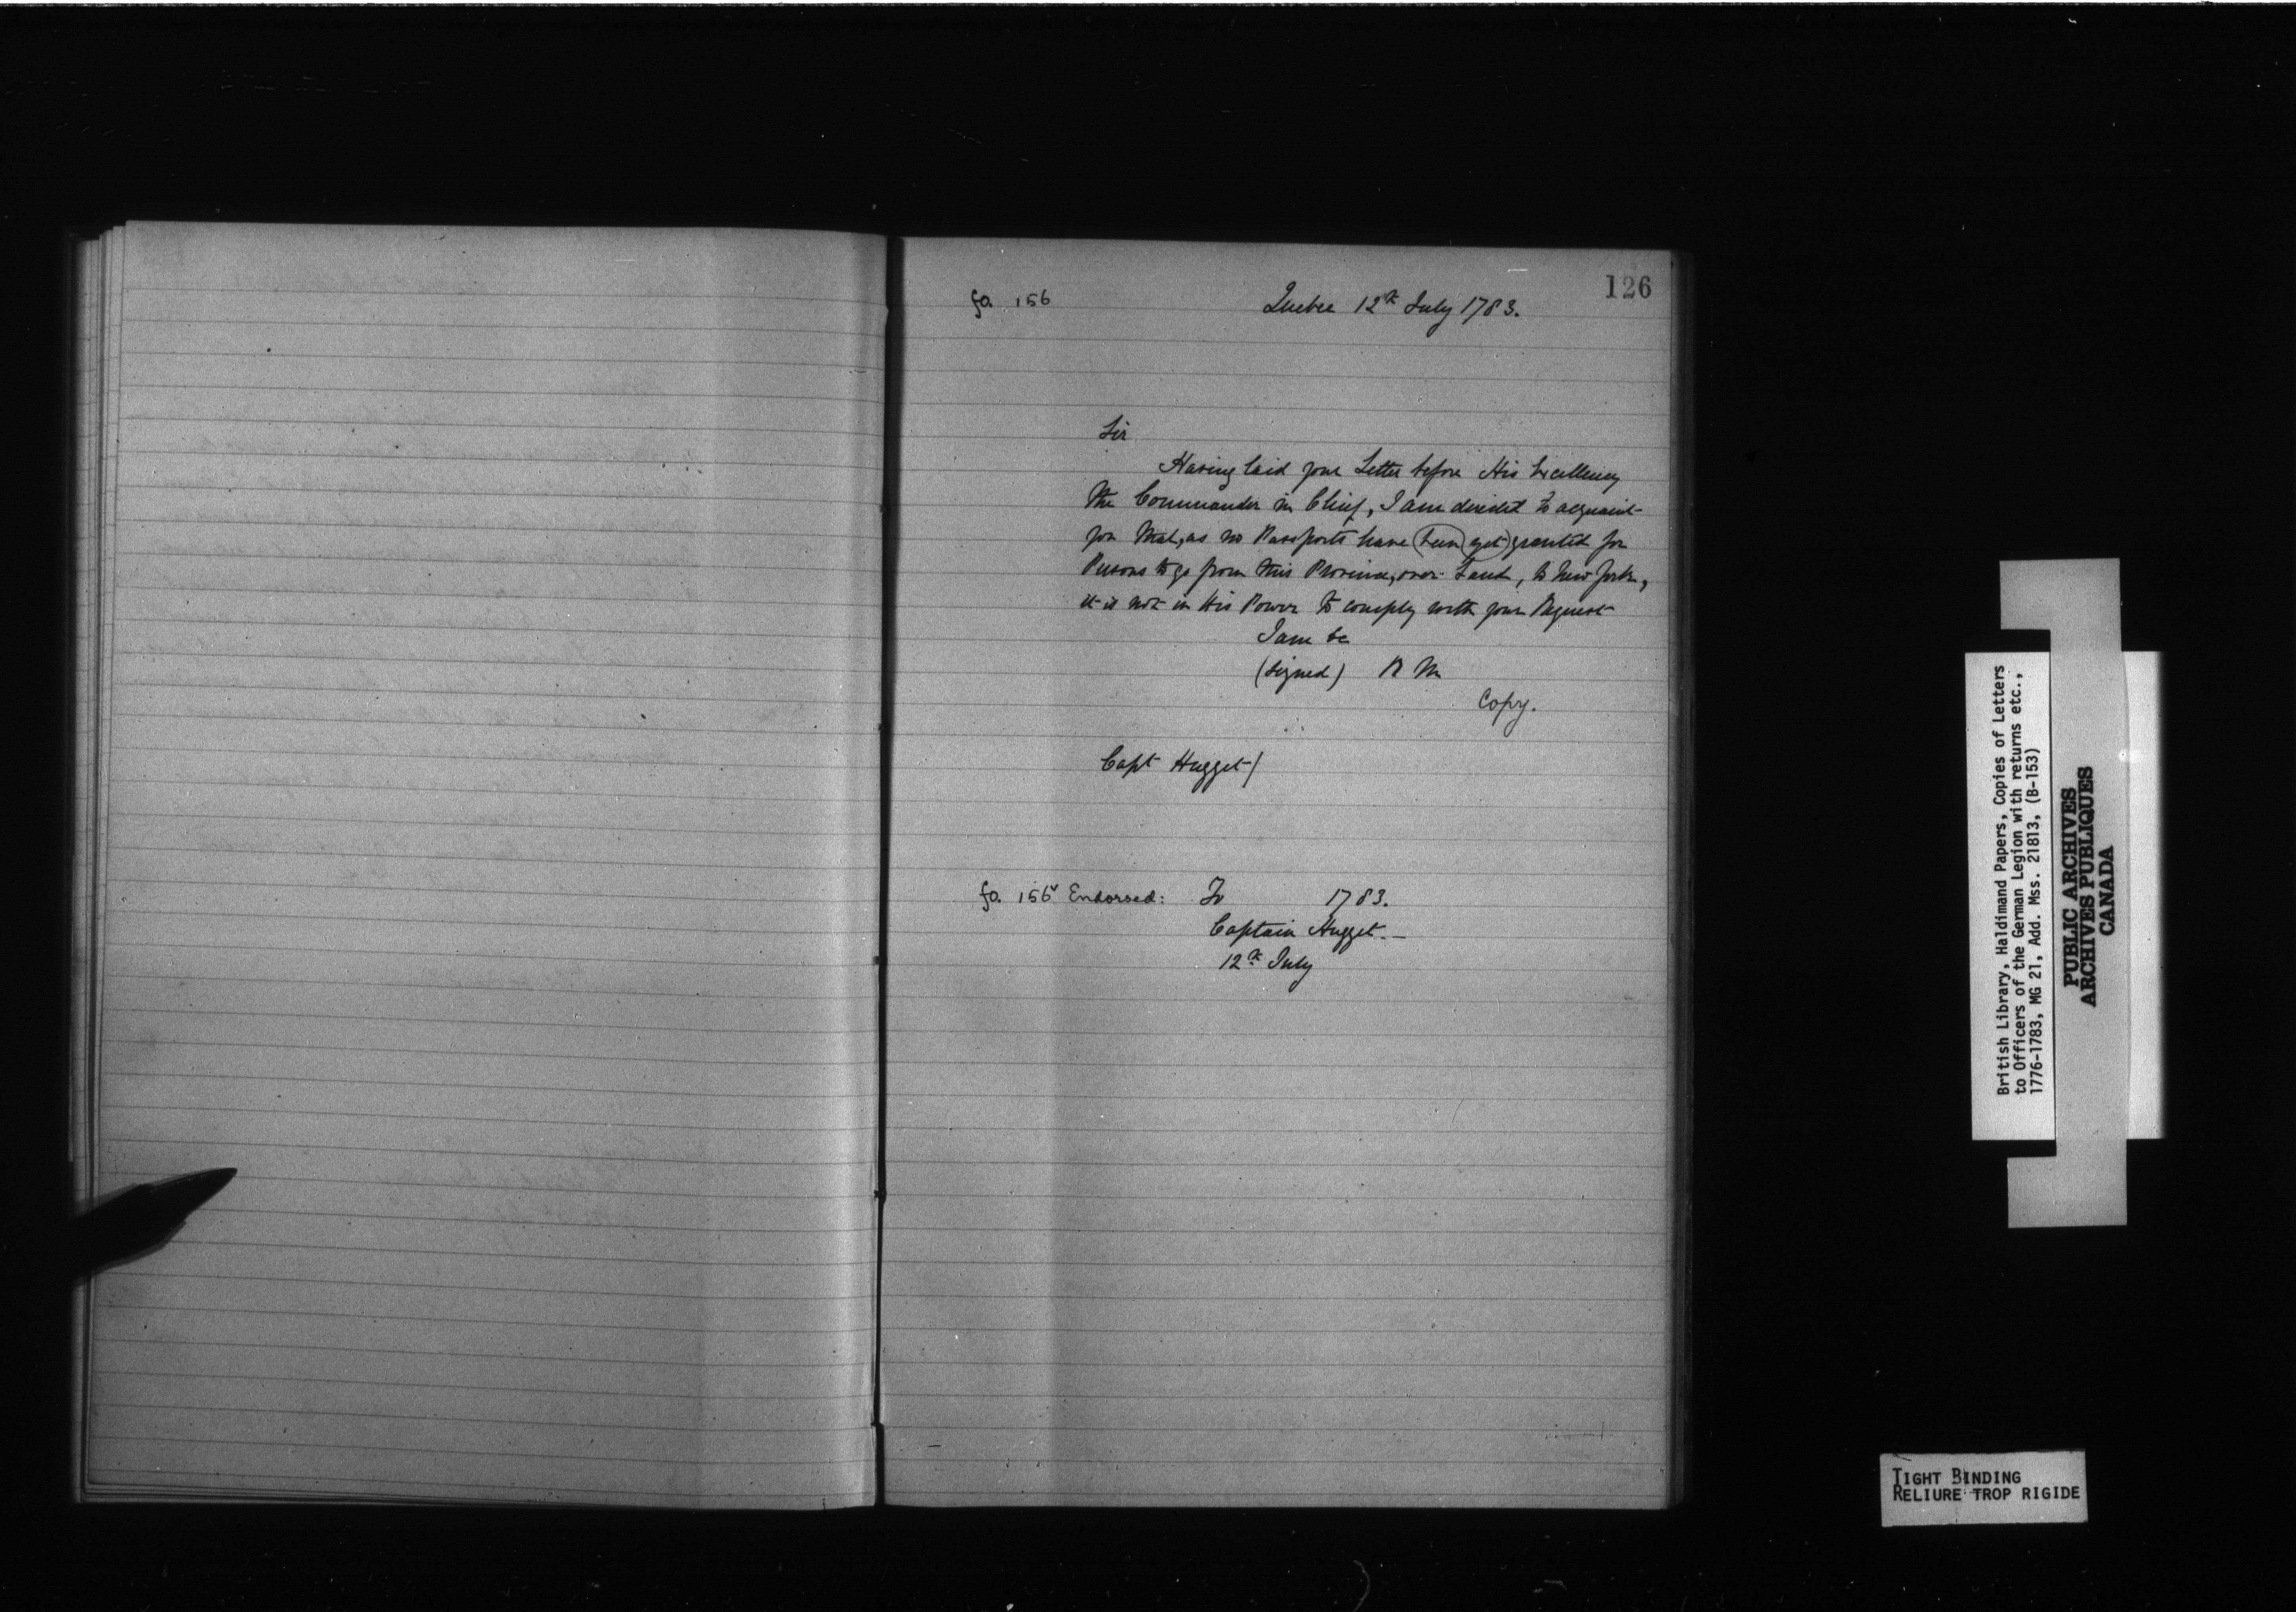 126
fo. 156
Quebec 12th July 1783.
Sir
Having laid your Letter before His Excellency
the Commander in Chief, I am directed to acquaint
you that, as no Passports have (been yet) granted for
Persons to go from this Province, over Land, to New York,
it is not in His Power to comply with your Request
I am &c
(signed) R M
Copy.
Capt Hugget/
fo. 156v Endorsed: To 1783.
Captain Hugget. —
12th July
British Library, Haldimand Papers, Copies of Letters
to Officers of the German Legion with returns etc.,
1776-1783, MG 21, Add. Mss. 21813, (B-153)
PUBLIC ARCHIVES
ARCHIVES PUBLIQUES
CANADA
TIGHT BINDING
RELIURE TROP RIGIDE